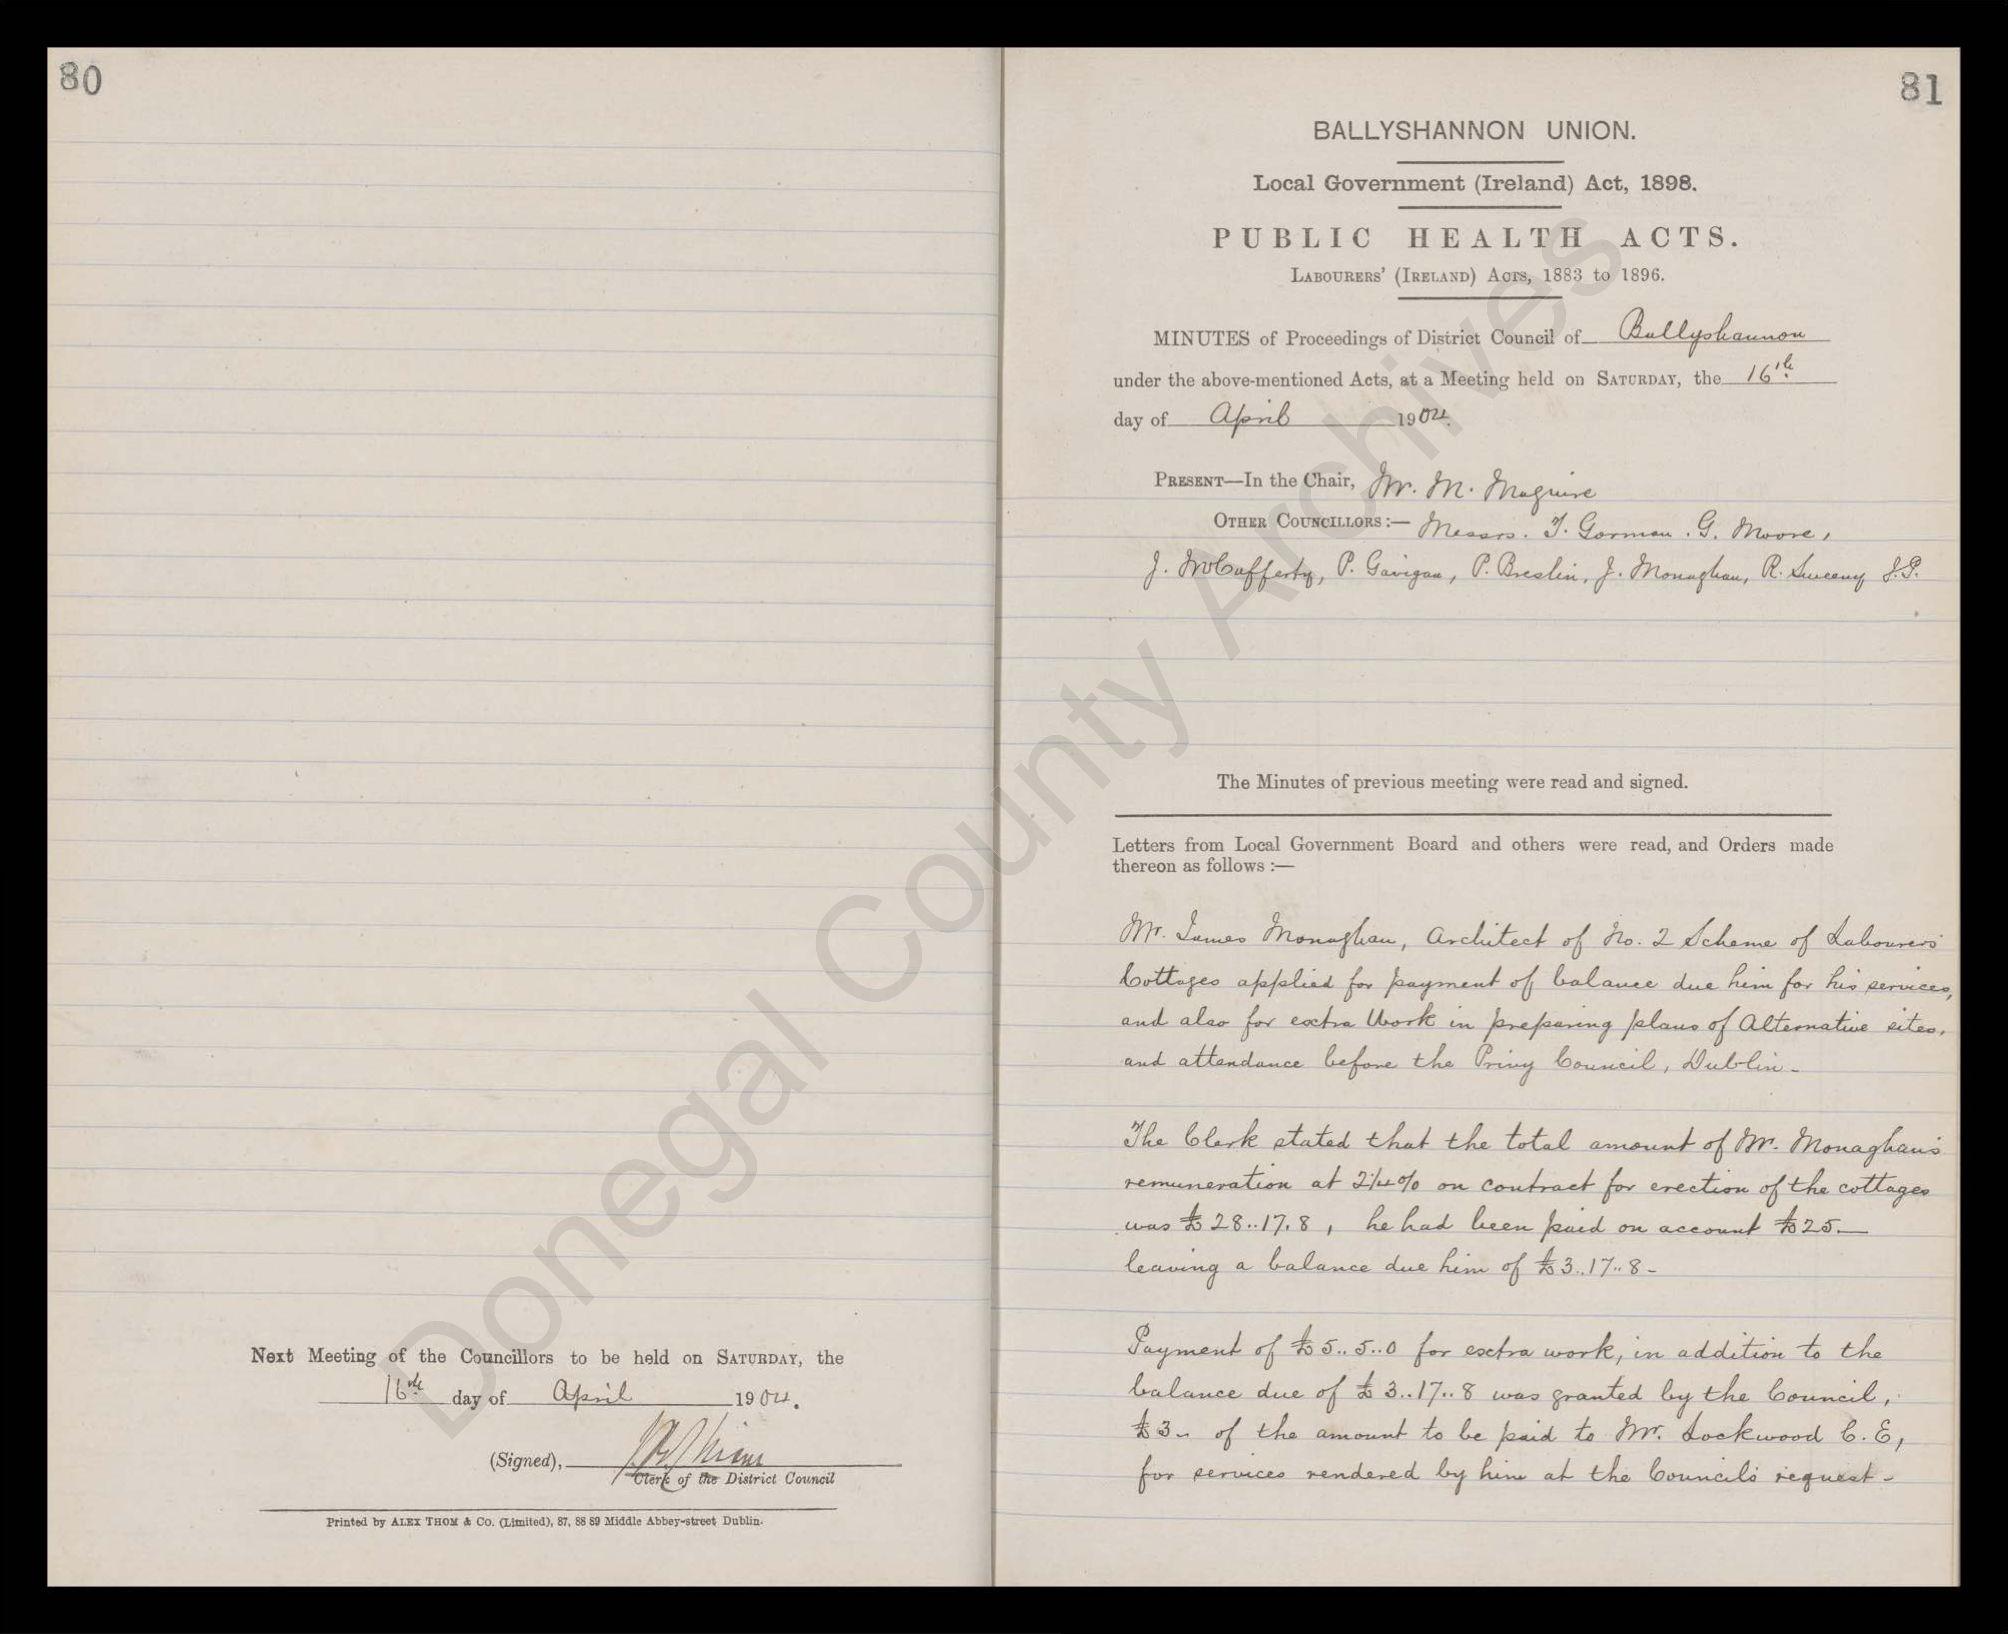 80
Next Meeting of the Councillors to be held on SATURDAY, the
16th day of April 1904.
(Signed),
Clerk of the District Council
Printed by ALEX THOM & Co. (Limited), 87, 88 89 Middle Abbey-street Dublin.
81
BALLYSHANNON UNION.
Local Government (Ireland) Act, 1898.
PUBLIC HEALTH ACTS.
LABOURERS' (IRELAND) ACTS, 1883 to 1896.
MINUTES of Proceedings of District Council of Ballyshannon
under the above-mentioned Acts, at a Meeting held on SATURDAY, the 16th
day of April 1904.
PRESENT—In the Chair, Mr. M. Maguire
OTHER COUNCILLORS:— Messrs. T. Gorman. G. Moore,
J. McCafferty, P. Gavigan, P. Breslin, J. Monaghan, R. Sweeny J.P.
The Minutes of previous meeting were read and signed.
Letters from Local Government Board and others were read, and Orders made
thereon as follows :—
Mr. James Monaghan, Architect of No. 2 Scheme of Labourers'
Cottages applied for payment of balance due him for his services,
and also for extra Work in preparing plans of Alternative sites,
and attendance before the Privy Council, Dublin-
The Clerk stated that the total amount of Mr. Monaghan's
remuneration at 2¼% on contract for erection of the cottages
was £28..17.8, he had been paid on account £25—
leaving a balance due him of £3..17..8-
Payment of £5..5..0 for extra work, in addition to the
balance due of £3..17..8 was granted by the Council,
£3- of the amount to be paid to Mr. Lockwood C.E,
for services rendered by him at the Council's request-
Donegal County Archives